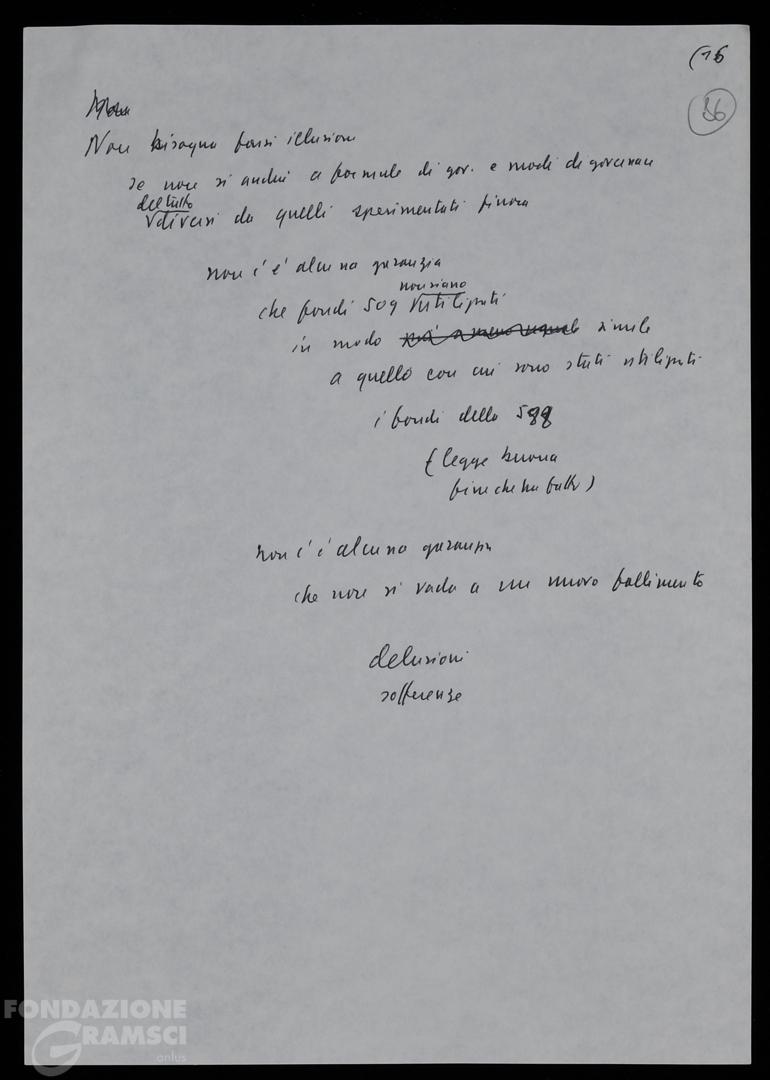 (16
36
Non bisogna farsi illusioni
se non si andrà a formule di gov. e modi di governare
del tutto
diversi da quelli sperimentati finora
non c'è alcuna garanzia
non siano
che fondi 509 utilizzati
in modo simile
a quello con cui sono stati utilizzati
i fondi della 588
(legge buona
fine che ha fatto)
non c'è alcuna garanzia
che non si vada a un nuovo fallimento
delusioni
sofferenze
FONDAZIONE
GRAMSCI
onlus